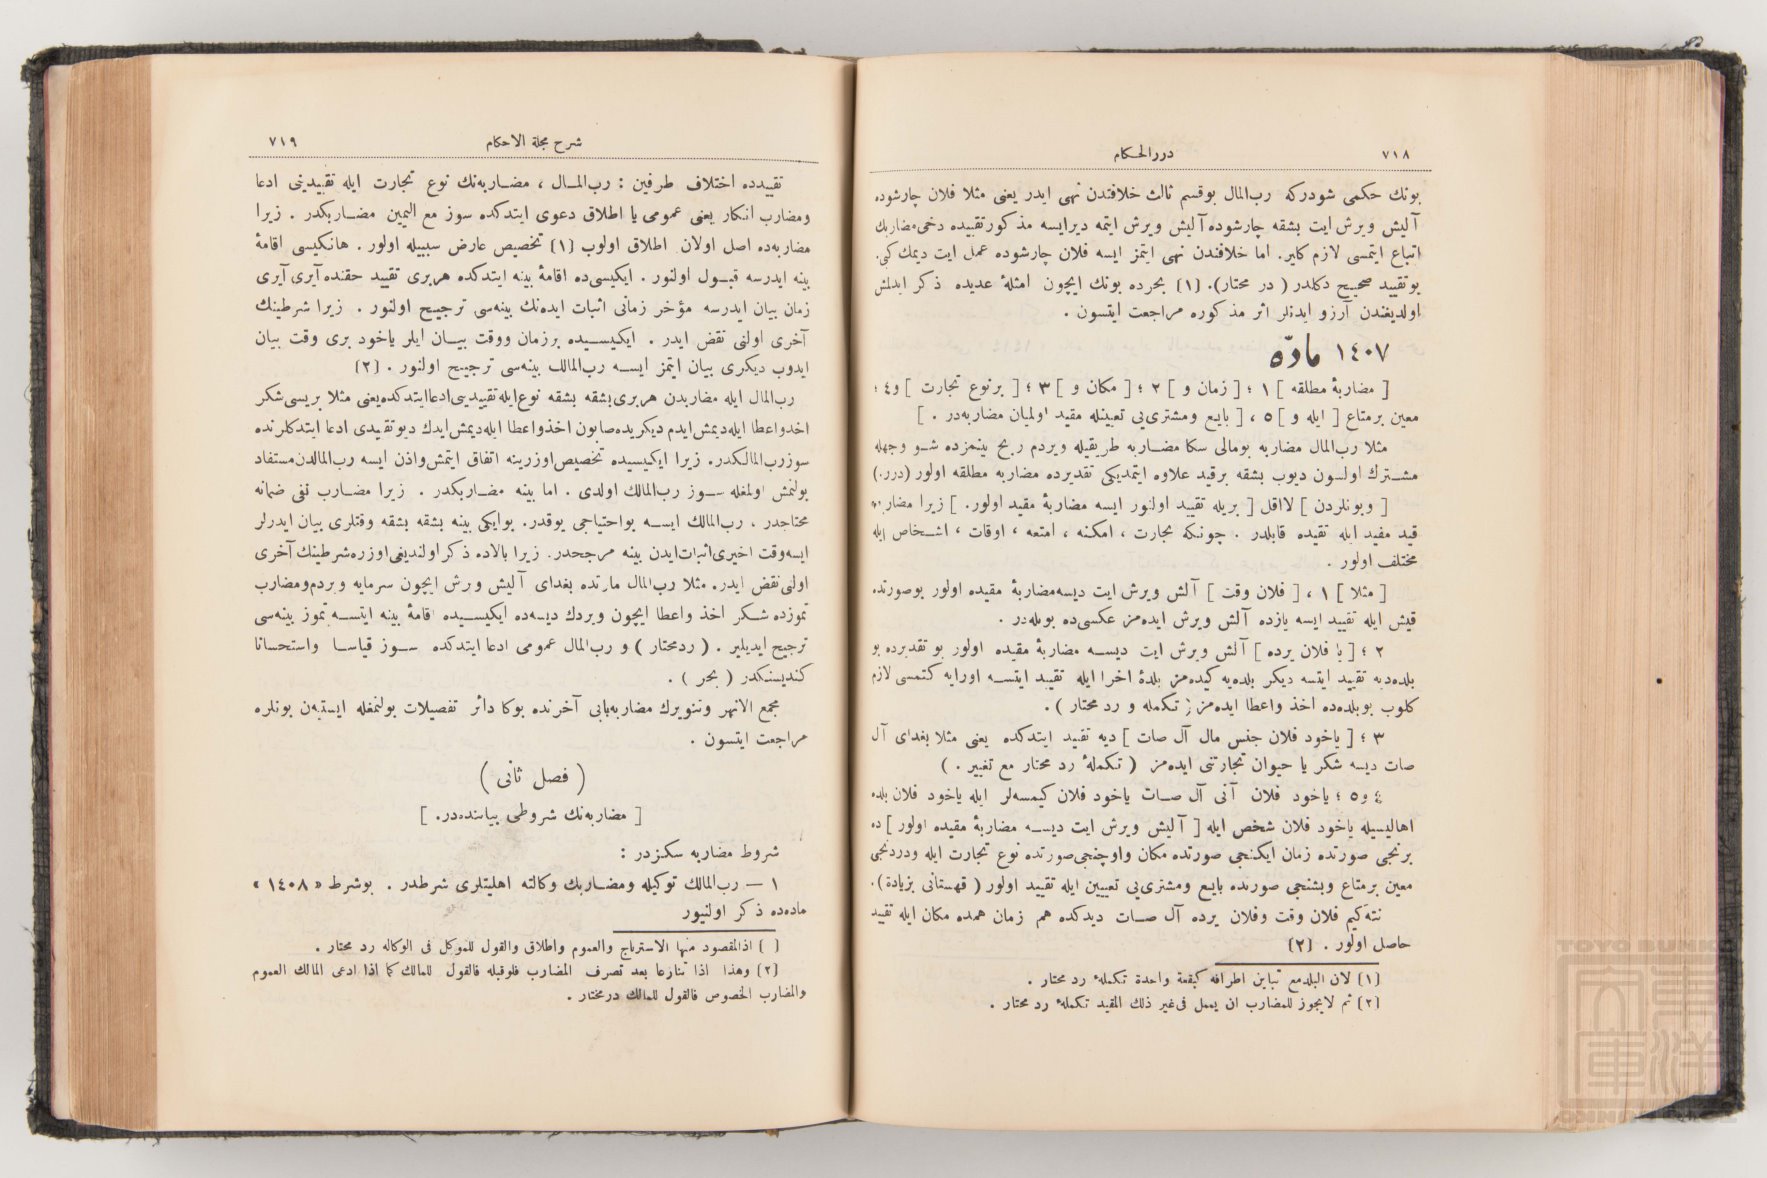 ٧١٨
دررالحكام
بونك حكمى شودركه رب‌المال بوقسم ثالث خلافتدن نهى ايدر يعنى مثلا فلان چارشوده
آليش ويرش ايت بشقه چارشوده آليش ويرش ايتمه ديرايسه مذكور تقييده دخى مضاربك
اتباع ايتمسى لازم كلير. اما خلافندن نهى ايتمز ايسه فلان چارشوده عمل ايت ديمك كبى.
بو تقييد صحيح دكلدر ( در مختار). [١] بحرده بونك ايچون امثلهٔ عديده ذكر ايدلمش
اولديغندن آرزو ايدنلر اثر مذكوره مراجعت ايتسون .
١٤٠٧ مادّه
[ مضاربهٔ مطلقه ] ١ ؛ [ زمان و ] ٢ ؛ [ مكان و ] ٣ ؛ [ برنوع تجارت ] و٤ ؛
معين برمتاع [ ايله و ] ٥ ، [ بايع ومشترى‌يى تعيينله مقيد اولميان مضاربه‌در . ]
مثلا رب‌المال مضاربه بومالى سكا مضاربه طريقيله ويردم ربح بينمزده شو وجهله
مشترك اولسون ديوب بشقه برقيد علاوه ايتمديكى تقديرده مضاربه مطلقه اولور (درر.)
[ وبونلردن ] لااقل [ بريله تقييد اولنور ايسه مضاربهٔ مقيد اولور. ] زيرا مضاربه
قيد مفيد ايله تقيده قابلدر . چونكه تجارت ، امكنه ، امتعه ، اوقات ، اشخاص ايله
مختلف اولور .
[ مثلا ] ١ ، [ فلان وقت ] آلش ويرش ايت ديسه مضاربهٔ مقيده اولور بوصورتده
قيش ايله تقييد ايسه يازده آلش ويرش ايده‌مز عكسى‌ده بويله‌در .
٢ ؛ [ يا فلان يرده ] آلش ويرش ايت ديسه مضاربهٔ مقيده اولور بو تقديرده بو
بلده‌ديه تقييد ايتسه ديكر بلده‌يه كيده‌مز بلدهٔ اخرا ايله تقييد ايتسه اورايه كتمسى لازم
كلوب بوبلده‌ده اخذ واعطا ايده‌مز ( تكمله و رد محتار ) .
٣ ؛ [ ياخود فلان جنس مال آل صات ] ديه تقييد ايتدكده يعنى مثلا بغداى آل
صات ديسه شكر يا حيوان تجارتنى ايده‌مز ( تكملهٔ رد محتار مع تغيير . )
٤ و٥ ؛ ياخود فلان آنى آل صات ياخود فلان كيمسه‌لر ايله ياخود فلان بلده
اهاليسيله ياخود فلان شخص ايله [ آليش ويرش ايت ديسه مضاربهٔ مقيده اولور ] ده
برنجى صورتده زمان ايكنجى صورتده مكان واوچنجى صورتده نوع تجارت ايله ودردنجى
معين برمتاع وبشنجى صورتده بايع ومشترى‌يى تعيين ايله تقييد اولور ( قهستانى بزيادة).
نته‌كيم فلان وقت وفلان يرده آل صات ديدكده هم زمان همده مكان ايله تقييد
حاصل اولور . [٢]
[١] لان البلدمع تباين اطرافه كبقعة واحدة تكملهٔ رد محتار .
[٢] ثم لايجوز للمضارب ان يعمل فى‌غير ذلك المقيد تكملهٔ رد محتار .
شرح مجلة الاحكام
٧١٩
تقييدده اختلاف طرفين : رب‌المال ، مضاربه‌نك نوع تجارت ايله تقييدينى ادعا
ومضارب انكار يعنى عمومى يا اطلاق دعوى ايتدكده سوز مع اليمين مضاربكدر . زيرا
مضاربه‌ده اصل اولان اطلاق اولوب [١] تخصيص عارض سببيله اولور . هانكيسى اقامهٔ
بينه ايدرسه قبول اولنور . ايكيسى‌ده اقامهٔ بينه ايتدكده هربرى تقييد حقنده آيرى آيرى
زمان بيان ايدرسه مؤخر زمانى اثبات ايده‌نك بينه‌سى ترجيح اولنور . زيرا شرطينك
آخرى اولنى نقض ايدر . ايكيسيده برزمان ووقت بيان ايلر ياخود برى وقت بيان
ايدوب ديكرى بيان ايتمز ايسه رب‌المالك بينه‌سى ترجيح اولنور . [٢]
رب‌المال ايله مضاربدن هربرى بشقه بشقه نوع‌ايله تقييديى ادعا ايتدكده يعنى مثلا بريسى شكر
اخذ واعطا ايله ديمش ايدم ديكريده صابون اخذ واعطا ايله ديمش ايدك ديو تقيدى ادعا ايتدكلرنده
سوز رب‌المالكدر. زيرا ايكيسيده تخصيص اوزرينه اتفاق ايتمش واذن ايسه رب‌المالدن مستفاد
بولنمش اولمغله سوز رب‌المالك اولدى . اما بينه مضاربكدر . زيرا مضارب نفى ضمانه
محتاجدر . رب‌المالك ايسه بو احتياجى يوقدر. بوايكى بينه بشقه بشقه وقتلرى بيان ايدرلر
ايسه وقت اخيرى اثبات ايدن بينه مرجحدر. زيرا بالاده ذكر اولنديغى اوزره شرطينك آخرى
اولنى نقض ايدر. مثلا رب‌المال مارتده بغداى آليش ورش ايچون سرمايه ويردم ومضارب
تموزده شكر اخذ واعطا ايچون ويردك ديسه‌ده ايكيسيده اقامهٔ بينه ايتسه تموز بينه‌سى
ترجيح ايديلير . ( ردمحتار ) و رب‌المال عمومى ادعا ايتدكده سوز قياسا واستحسانا
كنديسنكدر ( بحر ) .
مجمع الانهر وتنويرك مضاربه‌بابى آخرنده بوكا دائر تفصيلات بولنمغله ايستين بونلره
مراجعت ايتسون .
( فصل ثانى )
[ مضاربه‌نك شروطى بياننده‌در. ]
شروط مضاربه سكزدر :
١ — رب‌المالك توكيله ومضاربك وكالته اهليتلرى شرطدر . بوشرط « ١٤٠٨ »
ماده‌ده ذكر اولنيور
[ ] اذالمقصود منها الاسترباح والعموم واطلاق والقول للموكل فى الوكاله رد محتار .
[٢] وهذا اذا تنازعا بعد تصرف المضارب فلوقبله فالقول للمالك كما اذا ادعى المالك العموم
والمضارب الخصوص فالقول للمالك درمختار .
TOYO BUNKO
東洋文庫